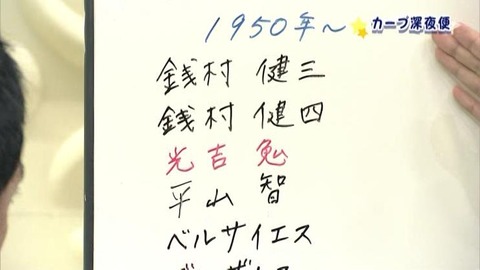 1950年～
カープ深夜便
銭村 健三
銭村 健四
光吉 勉
平山 智
ベルサイエス